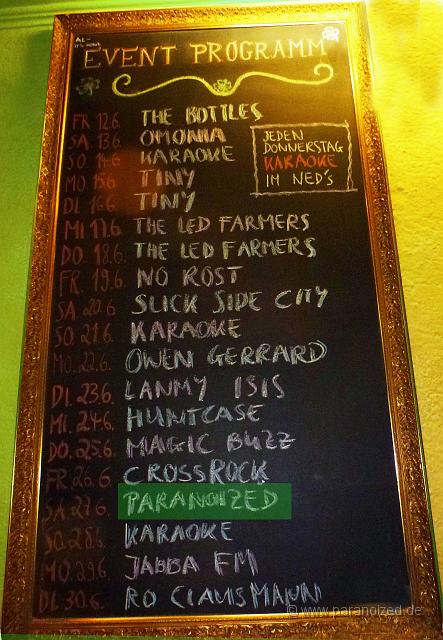 AL-
EVENT PROGRAMM
FR 12.6. THE BOTTLES
SA. 13.6 OMONIA
SO. 14.6 KARAOKE
MO. 15.6 TINY
DI. 16.6 TINY
JEDEN
DONNERSTAG
KARAOKE
IM NED'S
MI 17.6. THE LED FARMERS
DO. 18.6. THE LED FARMERS
FR. 19.6. NO ROST
SA. 20.6 SLICK SIDE CITY
SO. 21.6. KARAOKE
MO. 22.6. OWEN GERRARD
DI. 23.6. LANMY ISIS
MI. 24.6. HUNTCASE
DO. 25.6. MAGIC BUZZ
FR. 26.6. CROSSROCK
SA. 27.6. PARANOIZED
SO. 28.6. KARAOKE
MO. 29.6. JABBA FM
DI. 30.6. RO CLAUSMANN
© www.paranoized.de